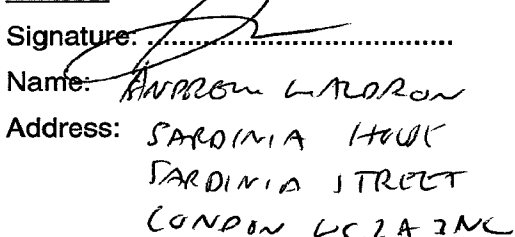 Signature: ..........................................
Name: ANDREW WALDRON
Address: SARDINIA HOUSE
SARDINIA STREET
LONDON WC2A 3NL